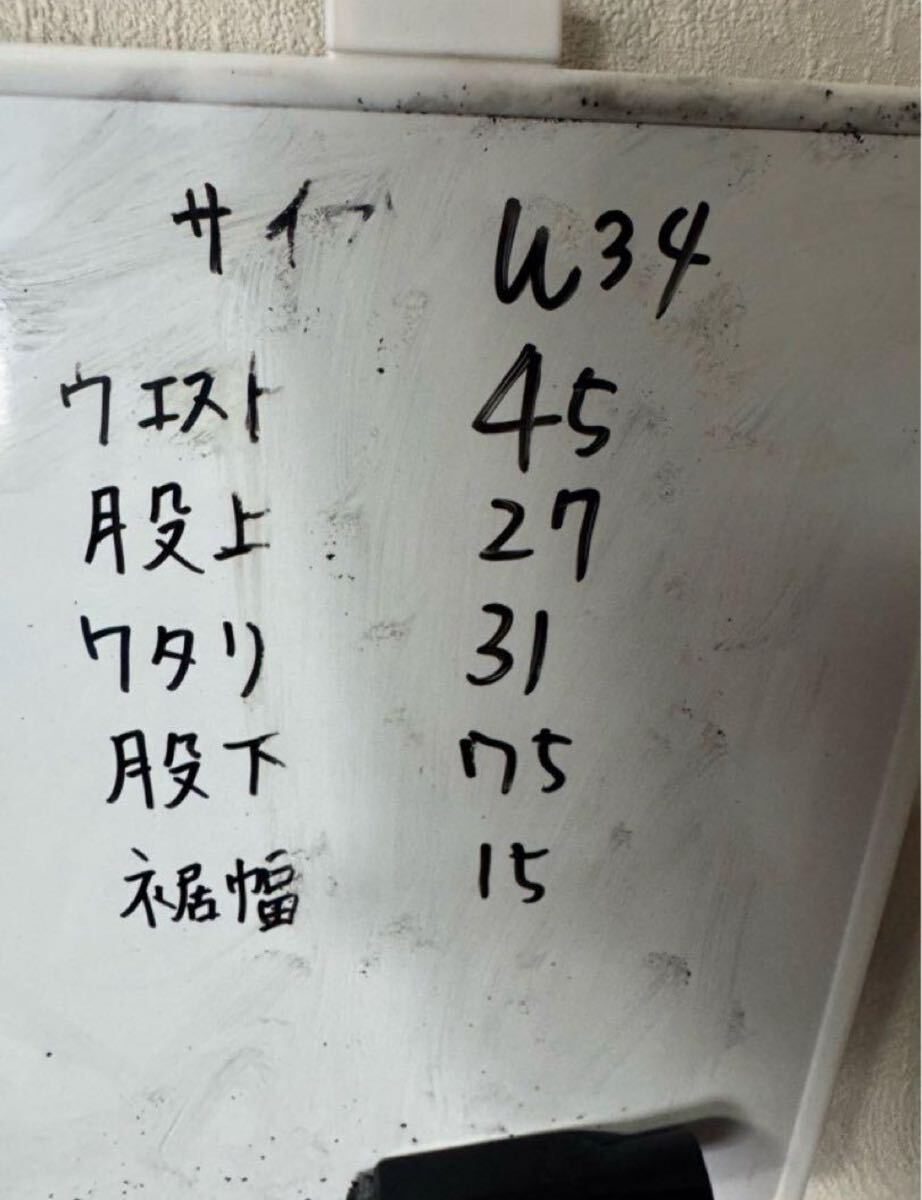 サイズ W34
ウエスト 45
股上 27
ワタリ 31
股下 75
裾幅 15